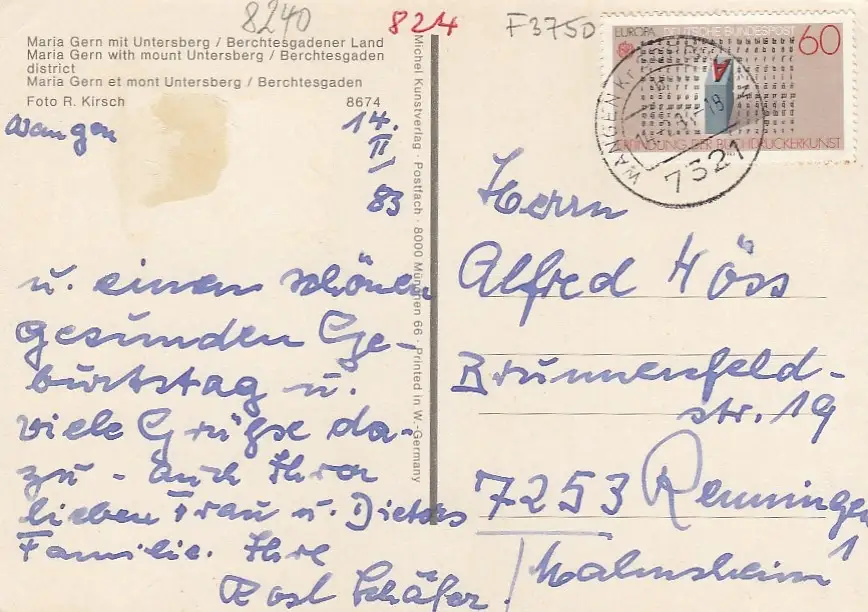 8240
824
F3750
Maria Gern mit Untersberg / Berchtesgadener Land
Maria Gern with mount Untersberg / Berchtesgaden
district
Maria Gern et mont Untersberg / Berchtesgaden
Foto R. Kirsch 8674
Wangen 14.
II
83
u. einen schönen
gesunden Ge-
burtstag u.
viele Grüße da-
zu - auch Ihrer
lieben Frau u. Dieters
Familie. Ihre
Rosl Schäfer.
Michel Kunstverlag · Postfach · 8000 München 66 · Printed in W.-Germany
EUROPA DEUTSCHE BUNDESPOST 60
A
ERFINDUNG DER BUCHDRUCKERKUNST
WANGEN
7321
Herrn
Alfred Höss
Brunnenfeld-
str. 19
7253 Renningen
1
Malmsheim